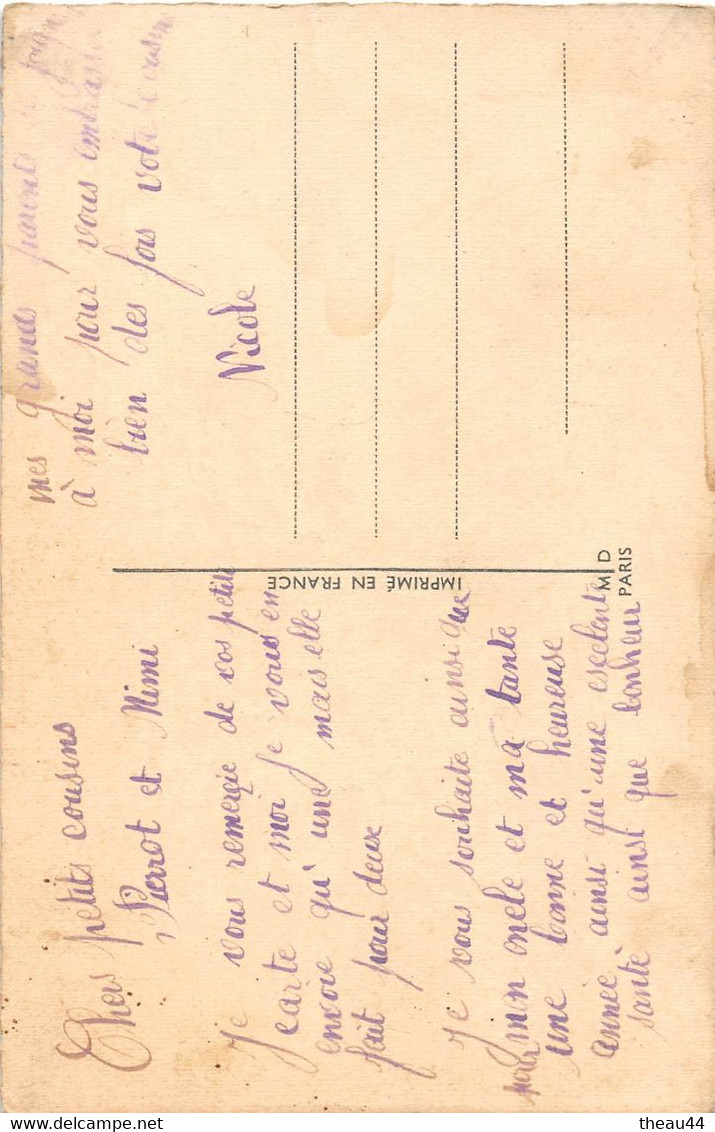 Chers petits cousins
Pierrot et Mimi
Je vous remerçie de vos petite
carte et moi je vous en
envoie qu'une mais elle
fait pour deux
Je vous souhaite ainsi que
pour mon oncle et ma tante
une bonne et heureuse
année ainsi qu'une esclente
santè ainsi que bonheur
mes grands parents
à moi pour vous embrasser
bien des fois votre cousine
Nicole
IMPRIMÉ EN FRANCE
M D
PARIS
theau44